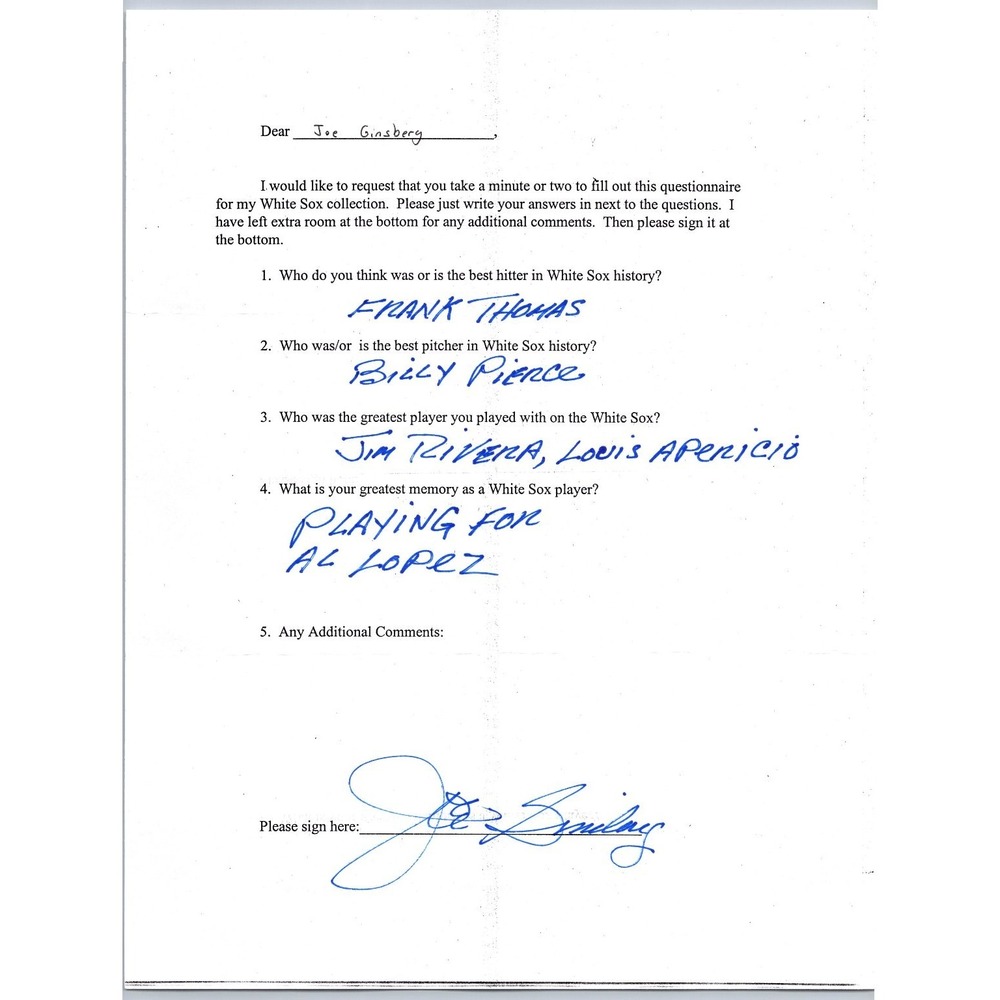 Dear Joe Ginsberg,
I would like to request that you take a minute or two to fill out this questionnaire
for my White Sox collection. Please just write your answers in next to the questions. I
have left extra room at the bottom for any additional comments. Then please sign it at
the bottom.
1. Who do you think was or is the best hitter in White Sox history?
FRANK THOMAS
2. Who was/or is the best pitcher in White Sox history?
BILLY PIERCE
3. Who was the greatest player you played with on the White Sox?
JIM RIVERA, LOUIS APERICIO
4. What is your greatest memory as a White Sox player?
PLAYING FOR
AL LOPEZ
5. Any Additional Comments:
Please sign here: Joe Ginsberg